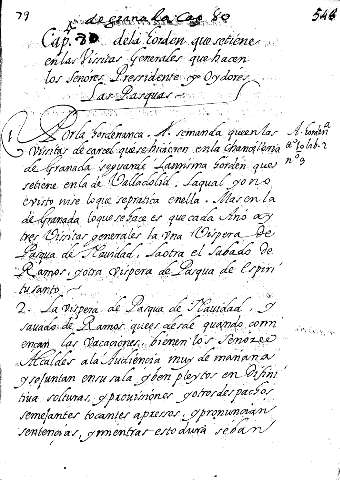 79
de guarda la Cap. 80
546
Cap. 80 de la horden que se tiene
en las Visitas Generales que hacen
los Señores Presidente y Oydores
Las Pasquas
1 Por la hordenança. A. se manda que en las
Visitas de carcel que se hiciere en la Chançilleria
de Granada se guarde la misma horden que
se tiene en la de Valladolid, la qual yo no
e visto ni se lo que se pratica en ella. Mas en la
de Granada lo que se hace es que cada año ay
tres Visitas generales la vna Vispera de
Pasqua de Navidad, la otra el sabado de
Ramos, y otra vispera de Pasqua de Espiri
tu santo
A. horden.ª
lib. 2
n.º 9
2. La vispera de Pasqua de Navidad, y
savado de Ramos, que es desde quando com
encan las vacaçiones, bienen los Señores
Alcaldes a la Audiencia muy de mañana
y se juntan en su sala, y ben pleytos en Difini
tiva solturas, y provisiones y otros despachos
semejantes tocantes a pressos, y pronuncian
sentencias, y mientras esto dura se ban